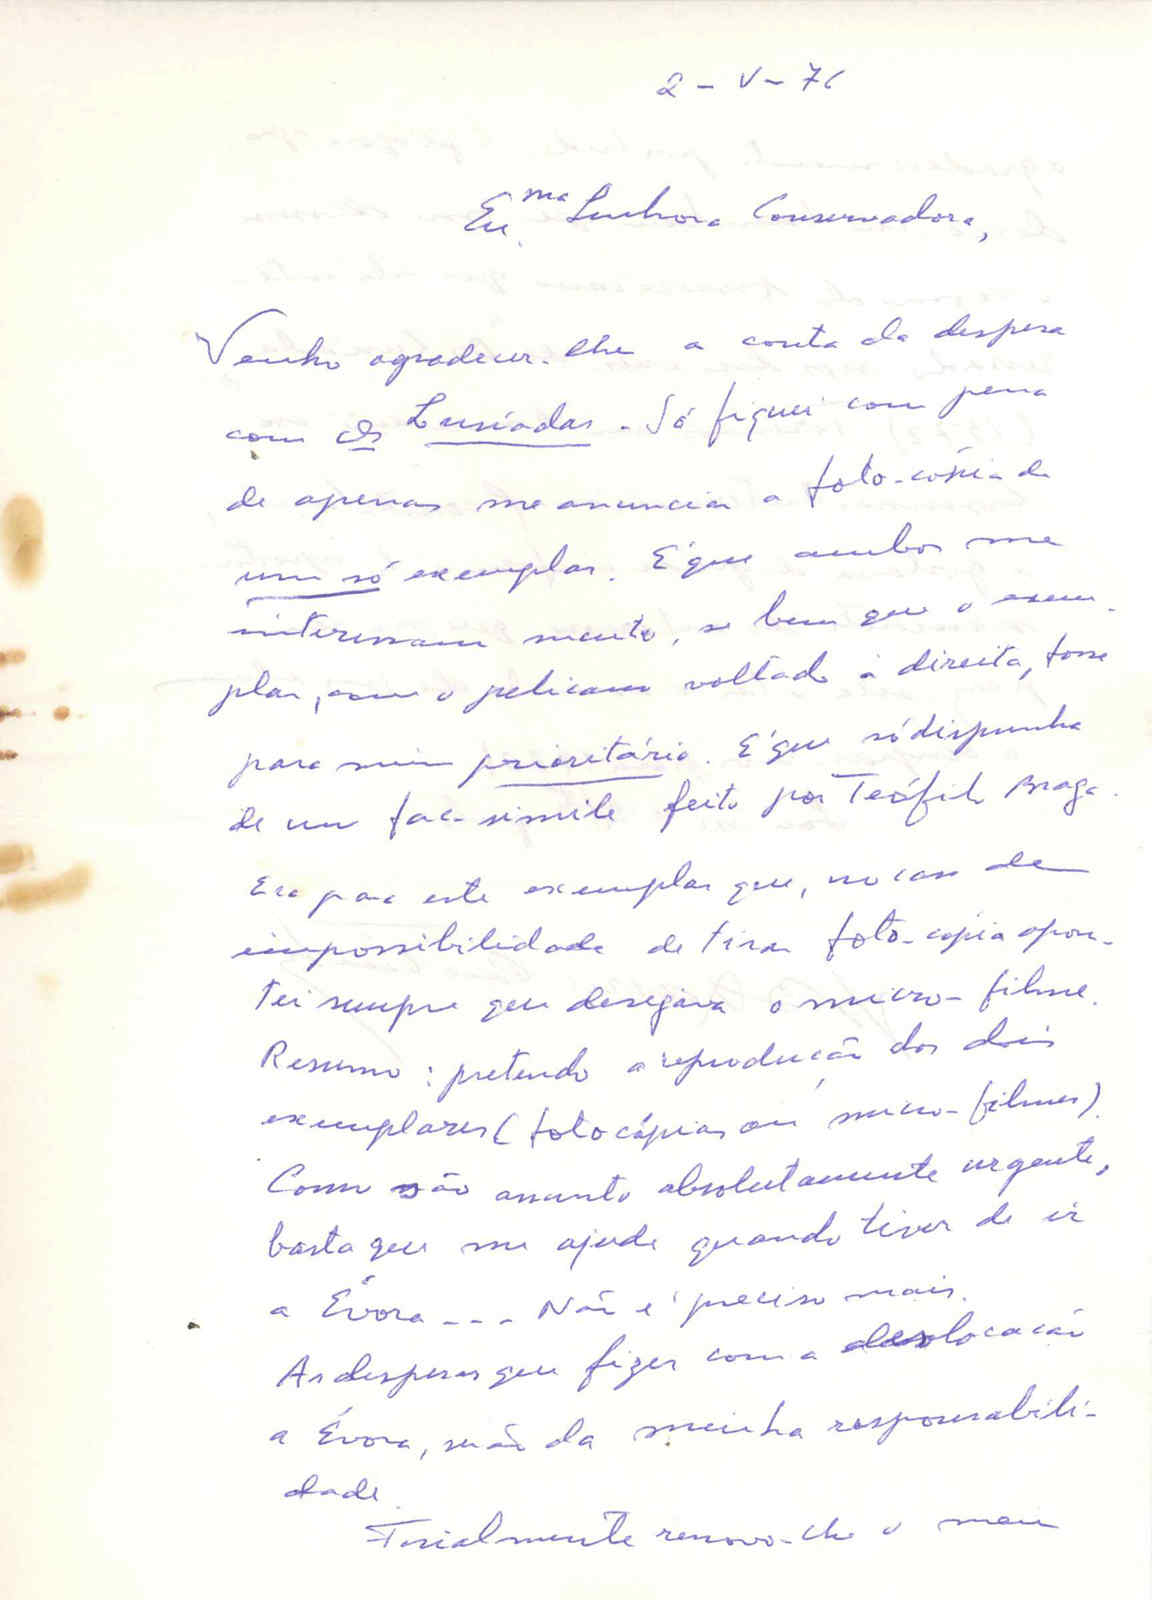 2 - V - 76
Ex.ma Senhora Conservadora,
Venho agradecer-lhe a conta da despesa
com Os Lusíadas. Só fiquei com pena
de apenas me anunciar a foto-cópia de
um só exemplar. É que ambos me
interessam muito, se bem que o exem-
plar, com o pelicano voltado à direita, fosse
para mim prioritário. É que só dispunha
de um fac-simile feito por Teófilo Braga.
Era para este exemplar que, no caso de
impossibilidade de tirar foto-cópia apon-
tei sempre que desejava o micro-filme.
Resumo: pretendo a reprodução dos dois
exemplares (fotocópias ou micro-filmes).
Como não assunto absolutamente urgente,
basta que me ajude quando tiver de ir
a Évora... Não é preciso mais.
As despesas que fizer com a deslocação
a Évora, serão da minha responsabili-
dade.
Finalmente renovo-lhe o meu